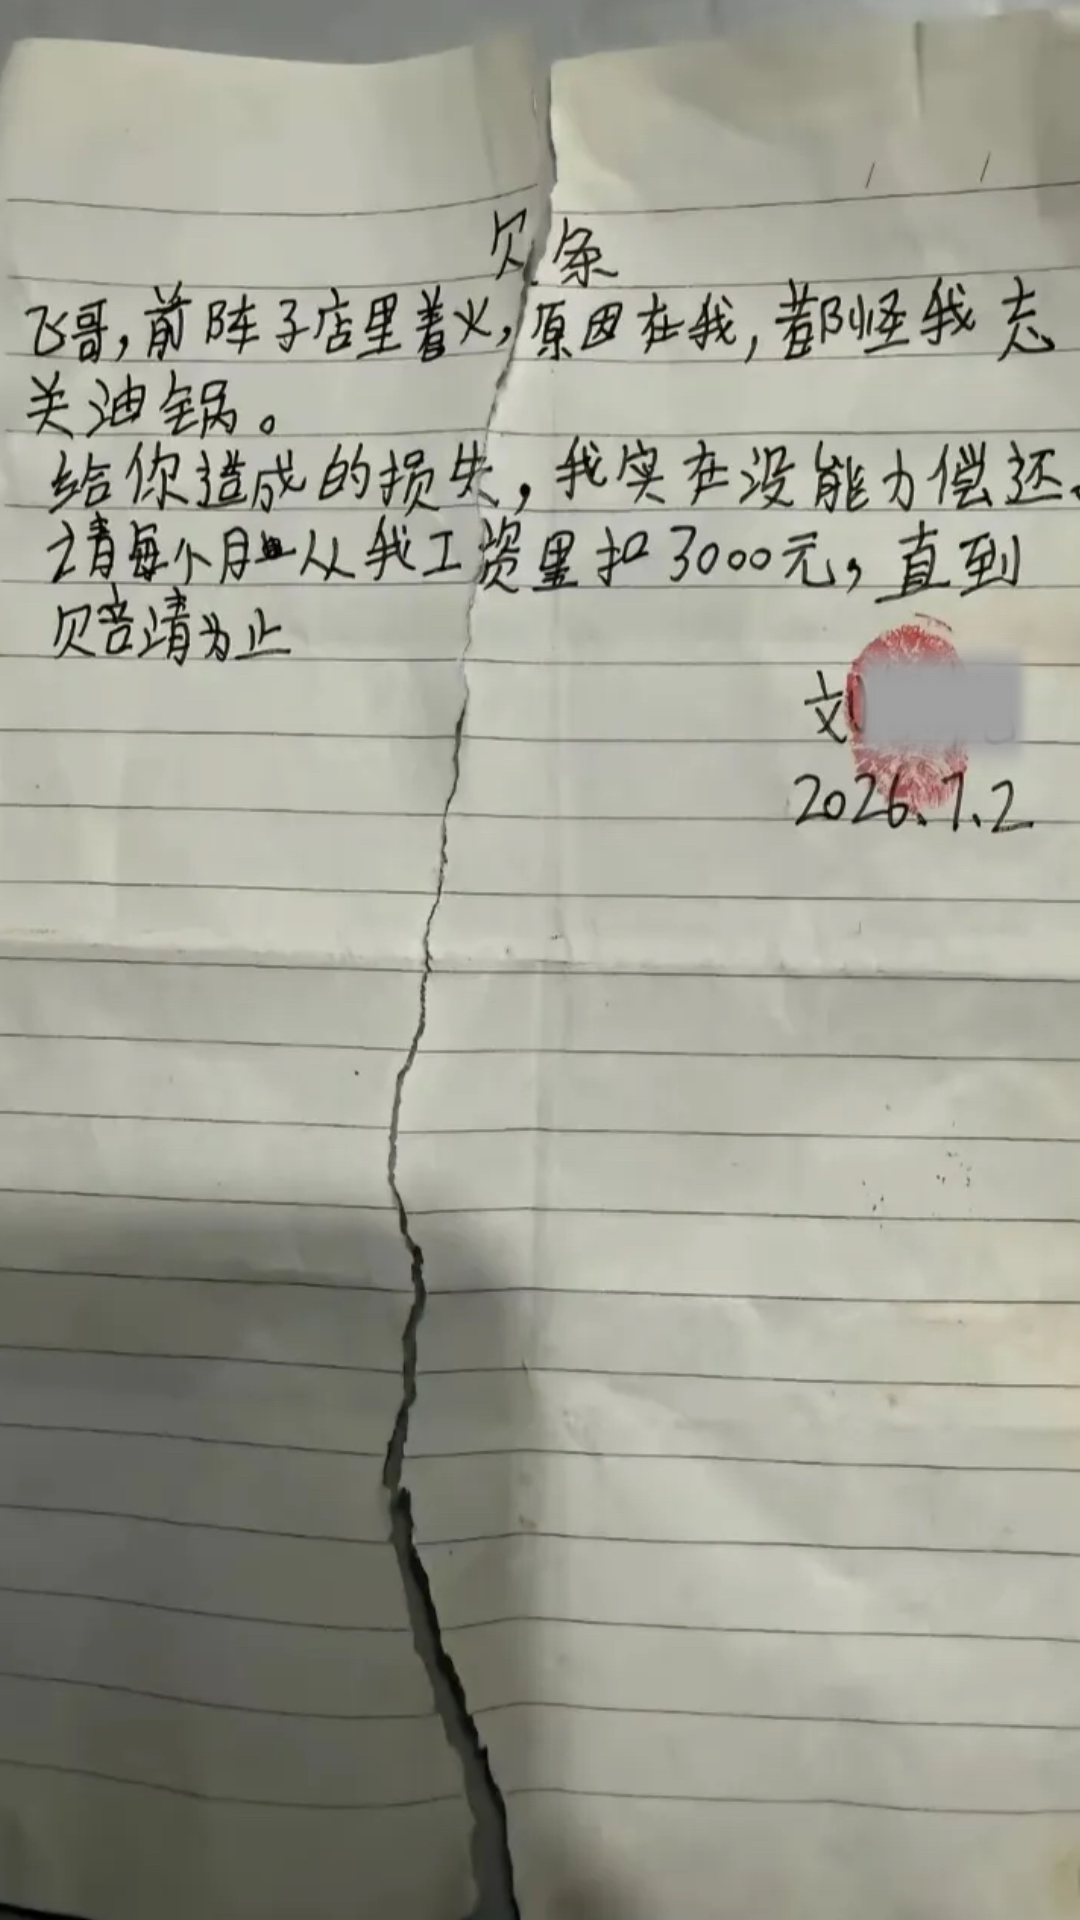 欠条
飞哥,前阵子店里着火,原因在我,都怪我忘
关油锅。
给你造成的损失,我实在没能力偿还。
请每个月从我工资里扣3000元,直到
欠赔清为止
文
2026.1.2